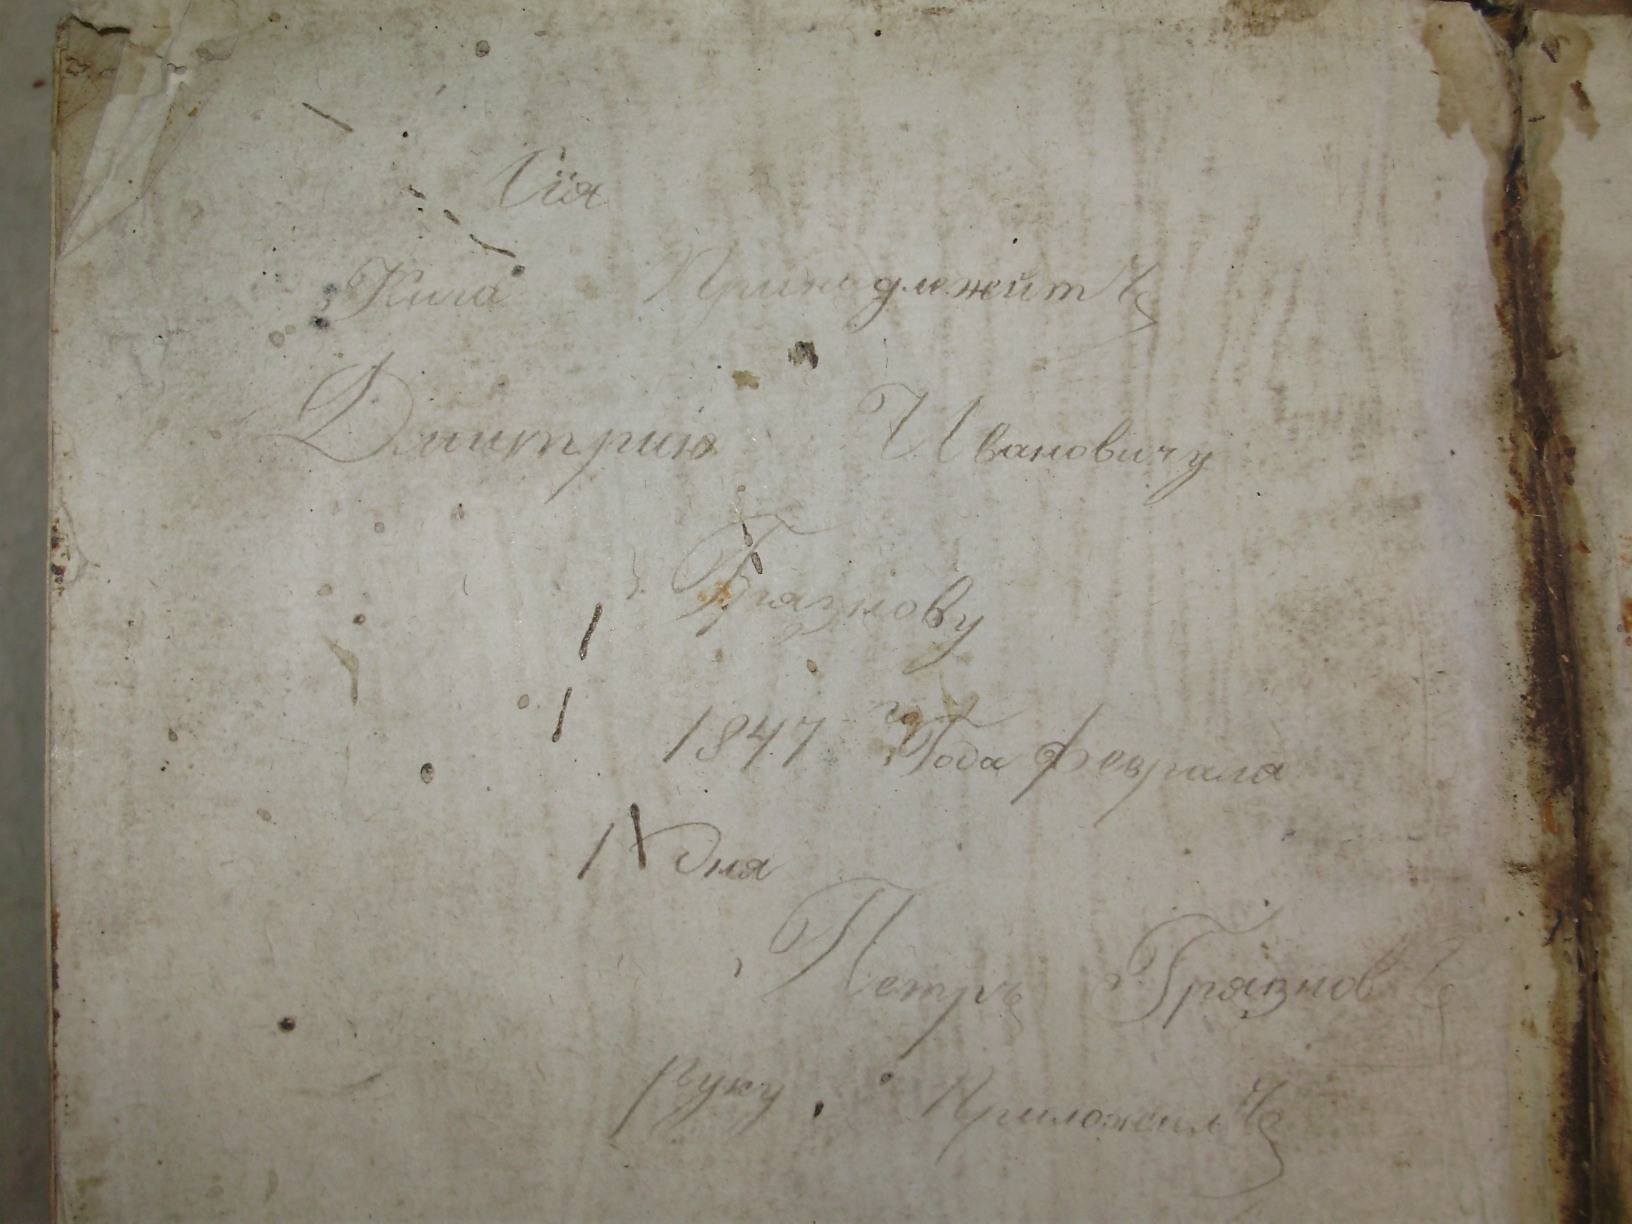 Сія
Книга Принадлежитъ
Дмитрию Ивановичу
Грязнову
1847 года Февраля
дня
Петръ Грязновъ
руку Приложилъ